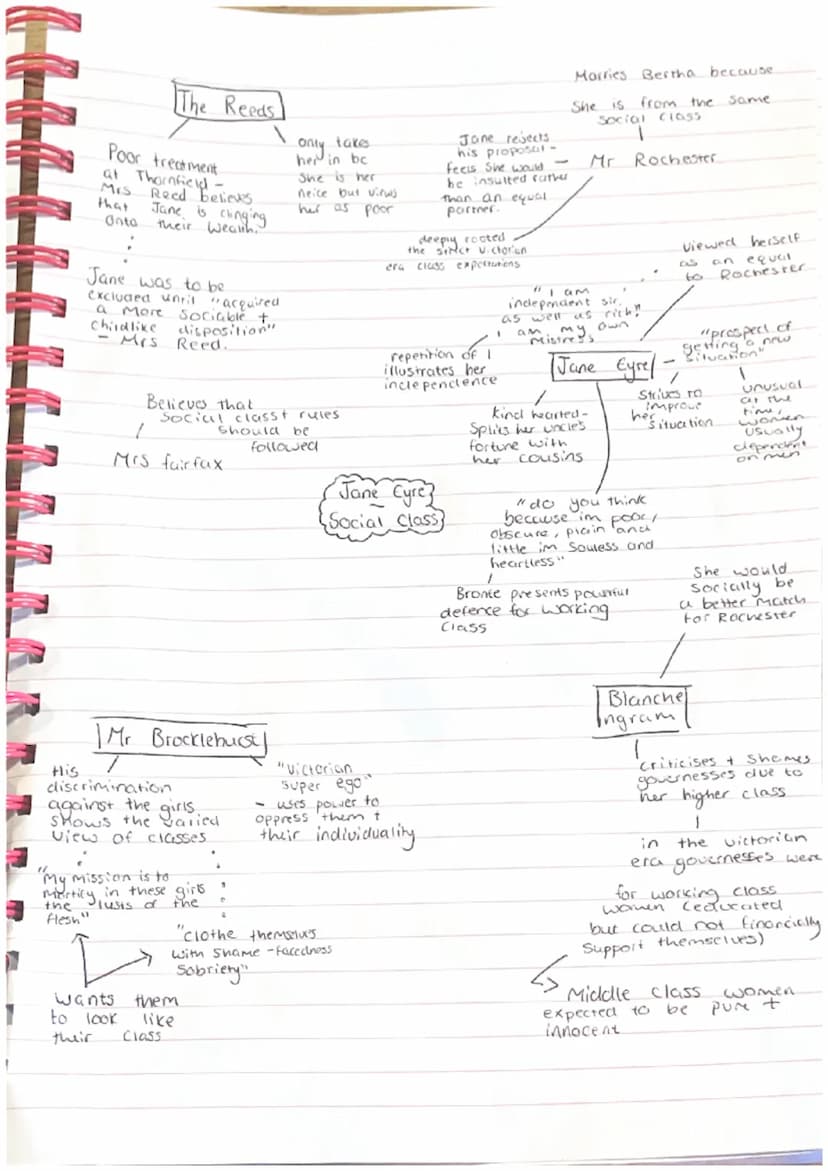 The Reeds
Poor treatment
at Thornfield -
Mrs Reed believes
that Jane is clinging
onto their wealth.
Jane was to be
excluded until "acquired
a more sociable +
childlike disposition"
- Mrs Reed.
only takes
her in bc
she is her
neice but views
her as poor
Marries Bertha because
She is from the same
social class
Mr Rochester
Jane rejects
his proposal -
feels she would
be insulted rather
than an equal
partner.
deeply rooted
the strict victorian
era class expectations
viewed herself
as an equal
to Rochester
"I am
independent sir,
as well as rich!"
I am my own
mistress
repetition of I
illustrates her
independence
Jane Eyre
"prospect of
getting a new
situation"
Strives to
improve
her situation
unusual
at the
time,
women
usually
dependent
on men
kind hearted-
Splits her uncles
fortune with
her cousins
Believes that
social classt rules
should be
followed
Mrs fairfax
Jane Eyre
-
Social Class
"do you think
because im poor,
obscure, plain and
little im souless and
heartless"
Bronte presents powerful
defence for working
Class
She would
socially be
a better match
for Rochester
Blanche
Ingram
criticises + shames
governesses due to
her higher class
in the victorian
era governesses were
for working class
women (educated
but could not financially
support themselves)
Middle class women
expected to be pure +
innocent
Mr Brocklehurst
His
discrimination
against the girls
shows the varied
view of classes
"Victorian
super ego"
- uses power to
oppress them +
their individuality
"My mission is to
mortify in these girls
the lusts of the
flesh"
"Clothe themselves
with shame-facedness
sobriety"
Wants them
to look like
their class